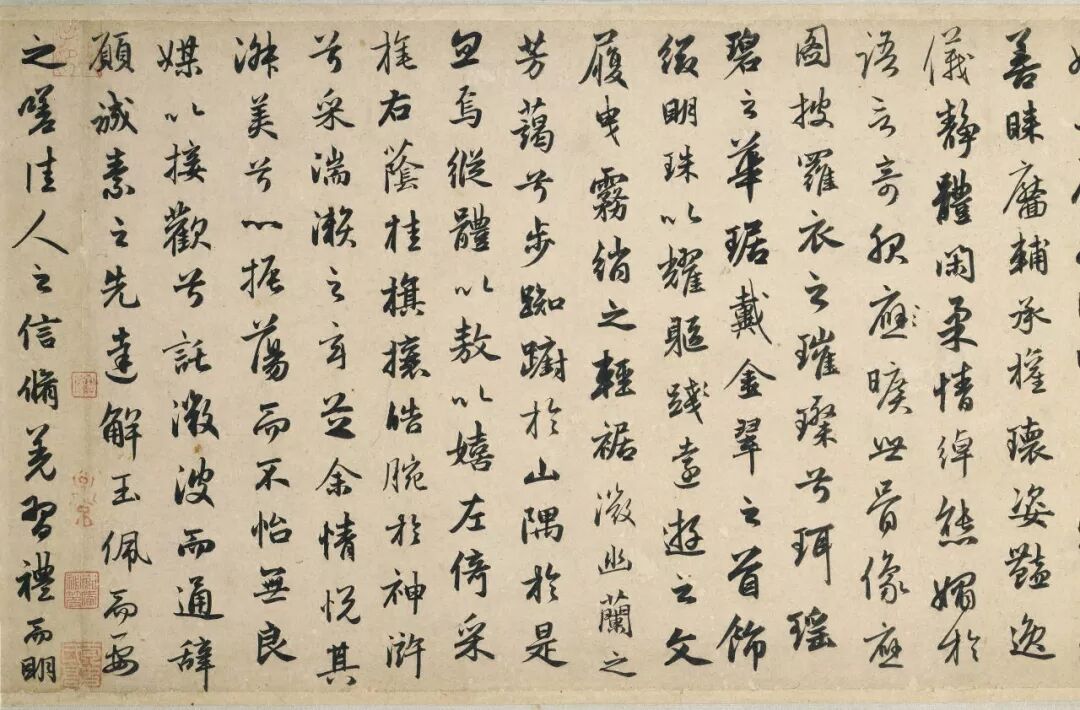 善睐靨輔承權瓌姿豔逸
儀静體閑柔情綽態媚於
語言奇服應曠世骨像應
圖披羅衣之璀璨兮珥瑶
碧之華琚戴金翠之首飾
綴明珠以耀軀踐遠遊之文
履曳霧綃之輕裾微幽蘭之
芳藹兮步踟躕於山隅於是
忽焉縱體以敖以嬉左倚采
旄右蔭桂旗攘皓腕於神滸
兮采湍瀨之玄芝余情悅其
淑美兮心振蕩而不怡無良
媒以接歡兮託微波而通辭
願誠素之先達解玉佩而要
之嗟佳人之信脩羌習禮而明